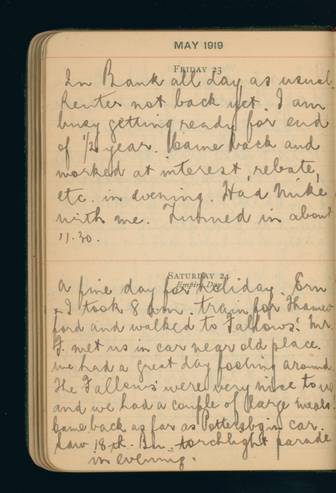 MAY 1919
FRIDAY 23
In Bank all day as usual.
Renter not back yet. I am
busy getting ready for end
of ½ year. Came back and
worked at interest, rebate,
etc. in evening. Had Mike
with me. Turned in about
11.30.
SATURDAY 24
Empire Day
A fine day for holiday. Ern
& I took 8 a.m. train for Thames
ford and walked to Fallows'. Mr
F. met us in car near old place.
We had a great day fooling around
The Fallows were very nice to us
and we had a couple of large meals.
Came back as far as in car.
Saw 18th Bn. torchlight parade
in evening.